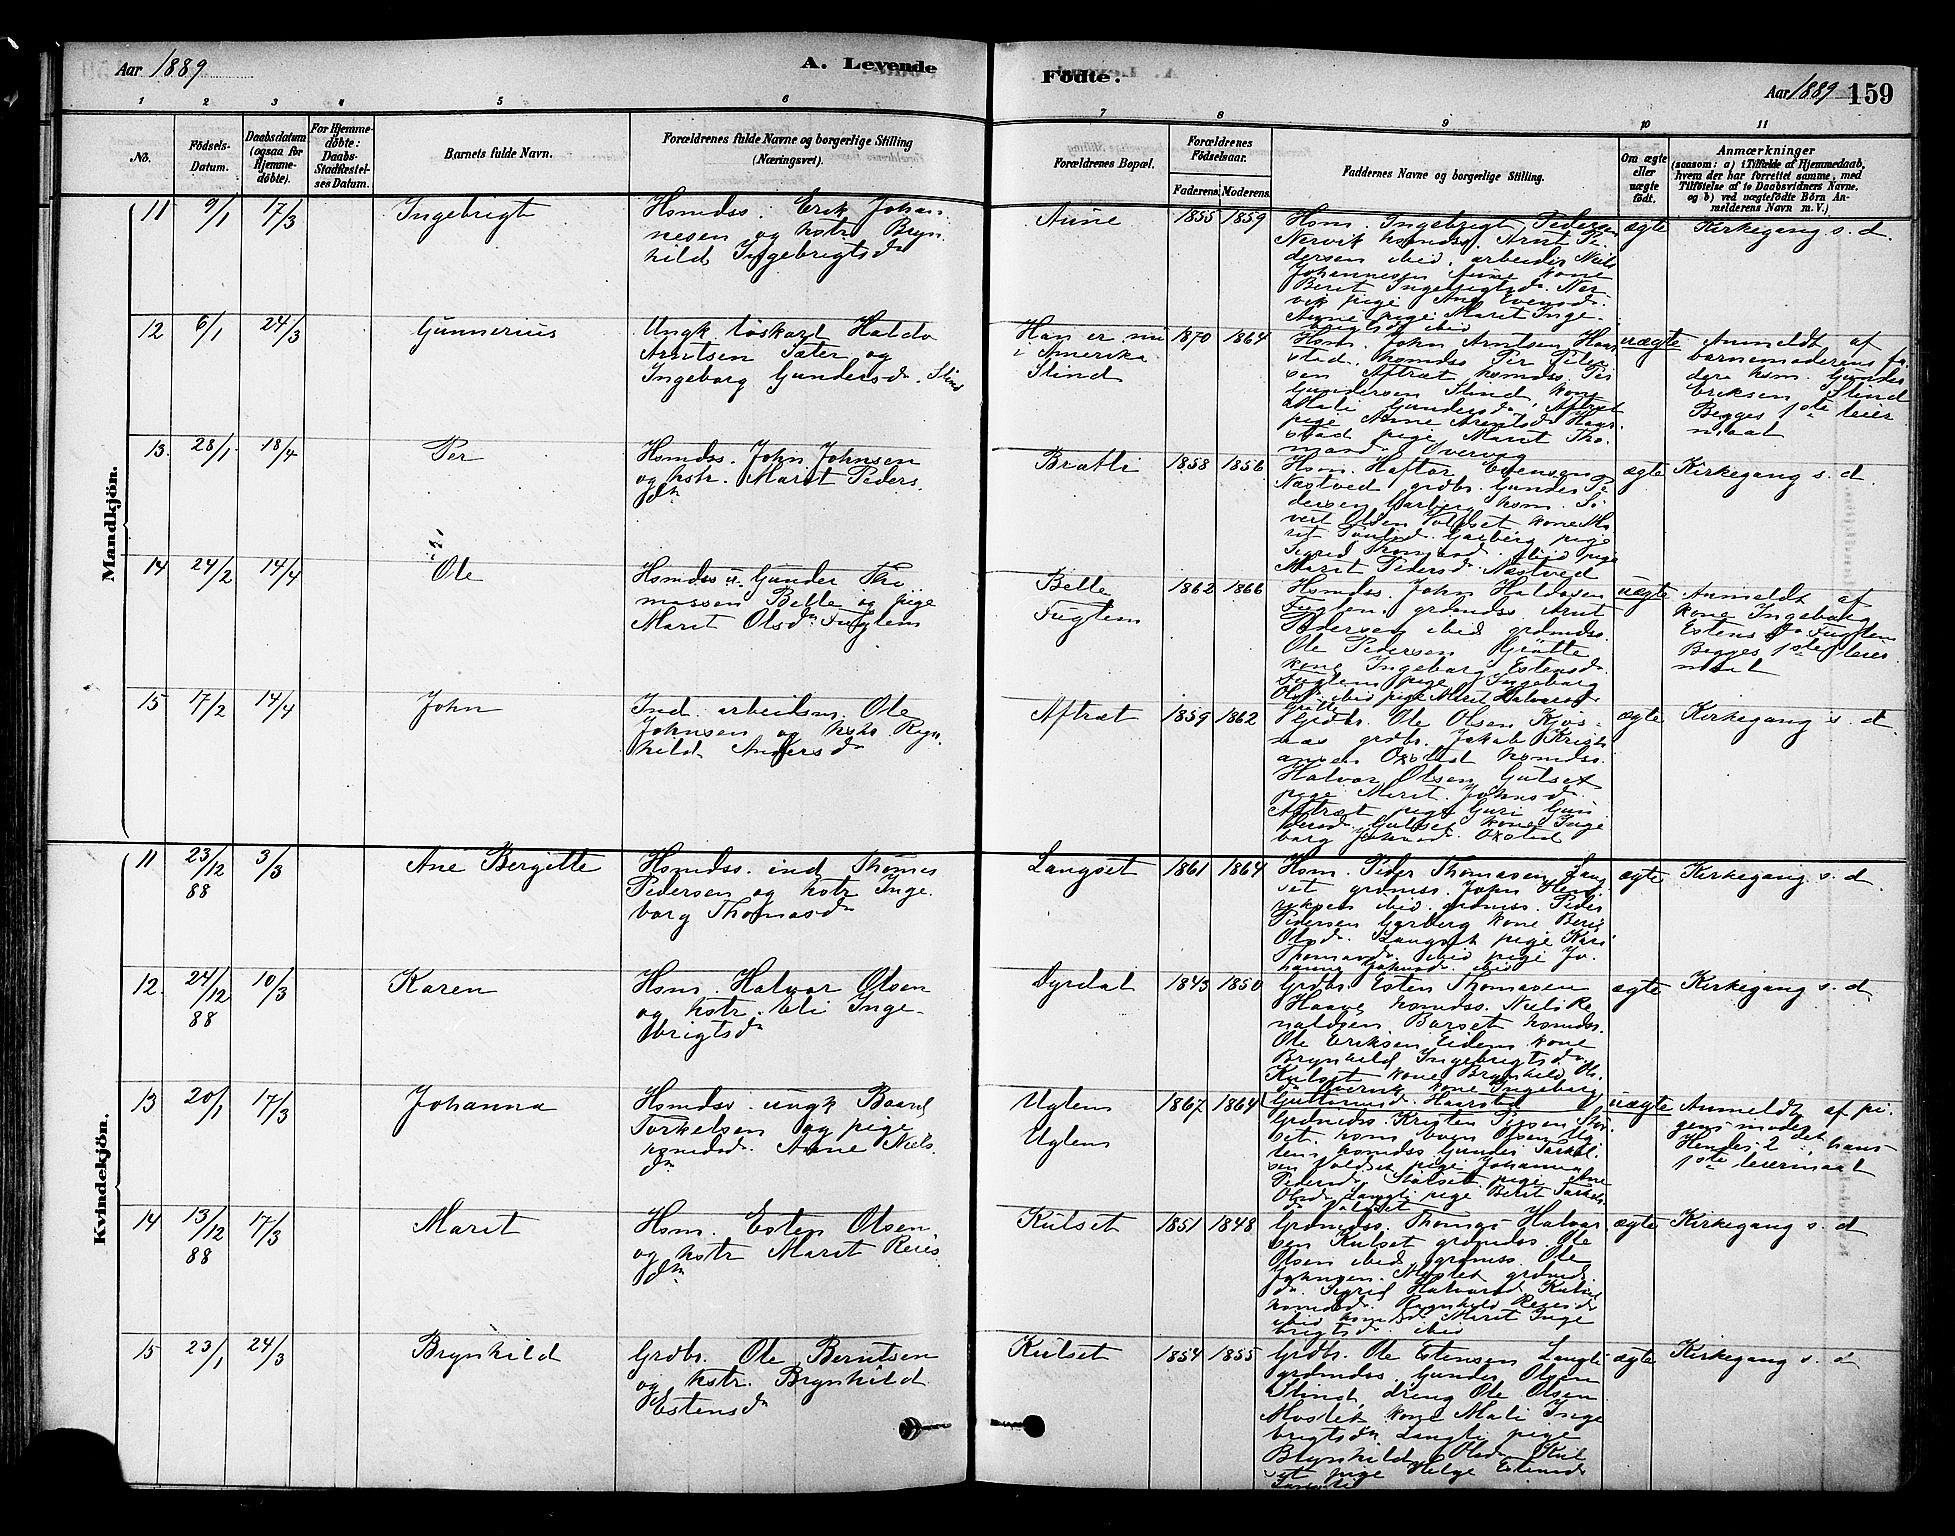 Aar 1889
A. Levende
Fødte.
Aar 1889 159
1 2 3 4 5 6 7 8 9 10 11
No.
Fødsels-
Datum.
Daabsdatum
(ogsaa for
Hjemme-
døbte).
For Hjemme-
døbte:
Daabs-
Stadfæstel-
ses Datum.
Barnets fulde Navn.
Forældrenes fulde Navne og borgerlige Stilling
(Næringsvei).
Forældrenes Bopæl.
Forældrenes
Fødselsaar.
Faderens. Moderens.
Faddernes Navne og borgerlige Stilling.
Om ægte
eller
uægte
født.
Anmærkninger
(saasom: a) i Tilfælde af Hjemmedaab,
hvem der har forrettet samme, med
Tilføielse af to Daabsvidners Navne,
og b) ved uægtefødte Børn An-
melderens Navn m. V.)
Mandkjön.
11 9/1 17/3 Ingebrigt
Hsmdss. Erik Johan
nesen og kstr Bryn
hild Ingebrigtsdr
Aune 1855 1859
Hsm. Ingebrigt Pedersen
Nervik hsmdss. Arnt Pe
dersen ibid. arbeider Niels
Johannesen Aune kone
Berit Ingebrigtsdr. Ner
vik pige Ane Evensdr.
Aune pige Marit Inge
brigtsdr ibid
ægte Kirkegang s. d.
12 6/1 24/3 Gunnerius
Ungk löskarl Haldo
Arntsen Sæter og
Ingeborg Gundersdr. Slind
Han er nu
i Amerika
Slind
1870 1864
Hsm. John Arntsen Haar
stad. hsmdss Per Peter
sen Aftræt hsmdss. Per
Gundersen Slind, kone
Mali Gundersdr. Aftræt
pige Anne Arntsdr Haar
stad pige Marit Tho
masdr Övervig
uægte
Anmeldt af
barnemoderens fa
der hsm. Gunder
Eriksen Slind
Begges 1ste leier
maal
13. 28/1 18/4 Per
Hsmdss. John Johnsen
og kstr. Marit Peders
dr
Bratli 1858 1856
Hsm. Haftor Estensen
Næstved grdbr. Gunder Pe
dersen Garberg hsm. Si
vert Olsen Volset kone Ma
rit Garberg pige
Sigrid Thomasdr. ibid pige
Marit Pedersdr. Næstved
ægte Kirkegang s. d.
14 24/2 14/4 Ole
Hsmdss u. Gunder Tho
massen Belle og pige
Marit Olsdr Fuglem
Belle
Fuglem
1862 1866
Hsmdss. John Haldosen
Fuglem. grdmdss Arnt
Pedersen ibid grdmdss.
Ole Pedersen Grötte
kone Ingeborg Estensdr
Fuglem pige Ingeborg
Olsdr. ibid pige Marit Halvorsdr
Grötte
uægte
Anmeldt af
kone Ingeborg
Estensdr Fuglem
Begges 1ste leier
maal
15 17/2 14/4 John
Ind. arbeidsm. Ole
Johnsen og kstr. Ragn
hild Andersdr
Aftræt 1859 1862
Grdbr. Ole Olsen Kjös
næs grdbr. Jakob Kristi
ansen Oxstad hsmdss.
Halvor Olsen Gulset
pige Marit Johnsdr.
Aftræt pige Guri Gun
dersdr Gulset kone Inge
borg Johnsdr. Oxstad
ægte Kirkegang s. d.
Kvindekjön.
11 23/12 88 3/3 Ane Bergitte
Hsmdss. ind Thomas
Pedersen og kstr Inge
borg Thomasdr
Langset 1861 1864
Hsm. Peder Thomasen Lang
set grdmss. John Hend
riksen ibid. grdmss. Peder
Pedersen Garberg kone Berit
Olsdr. Langset pige Kari
Thomasdr. ibid pige Jo
hanna Johnsdr. ibid
ægte Kirkegang s. d.
12. 24/12 88 10/3 Karen
Hsm. Halvor Olsen
og kstr. Eli Inge-
brigtsdr
Dyrdal 1843 1850
Grdbr. Esten Thomasen
Haave hsmdss. Niels Re
naldsen. Barset hsmdss.
Ole Eriksen Eidem kone
Brynhild Ingebrigtsdr.
Kulset kone Brynhild Ols
dr Övervik kone Ingeborg
Guttormsdr. Haarstad
ægte Kirkegang s. d.
13 20/1 17/3 Johanna
Hsmdss. ungk Baard
Torkelsen og pige
hsmdsd. Anne Niels
dr
Uglem
Uglem
1867 1864
Grdmdss. Kristen
set. hsm Olsen Ug
lem. hsmdss Gunder Torkel
sen Volset pige Johanna
Pedersdr. Slatset. pige Ane
Olsdr. Langli pige Berit Torkels
dr Volset
uægte
Anmeldt af pi
gens moder
Hendes 2det, hans
1ste leiermaal
14 13/12 88 17/3 Marit
Hsm. Esten Olsen
og kstr Marit Reiers
dr
Kulset 1851 1848
Grdmdss. Thomas Halvor
sen Kulset grdmdss. Ole
Olsen ibid. grdmss. Ole
Johnsen. Mostet grdmds
dr. Sigrid Halvorsdr Kulset
hsmdsdr. Brynhild Reiersdr
ibid Marit Inge
brigtsdr ibid
ægte Kirkegang s. d
15 23/1 24/3 Brynhild
Grdbr. Ole Berntsen
og kstr. Brynhild
Estensdr
Kulset 1854 1855
Grdbr. Ole Estensen Langli
grdmdss. Gunder Olsen
Slind, dreng Ole Olsen
Mostet kone Mali Inge
brigtsdr Langli pige
Brynhild Olsdr Kul
set pige Helge Estensdr
ægte Kirkegang s. d